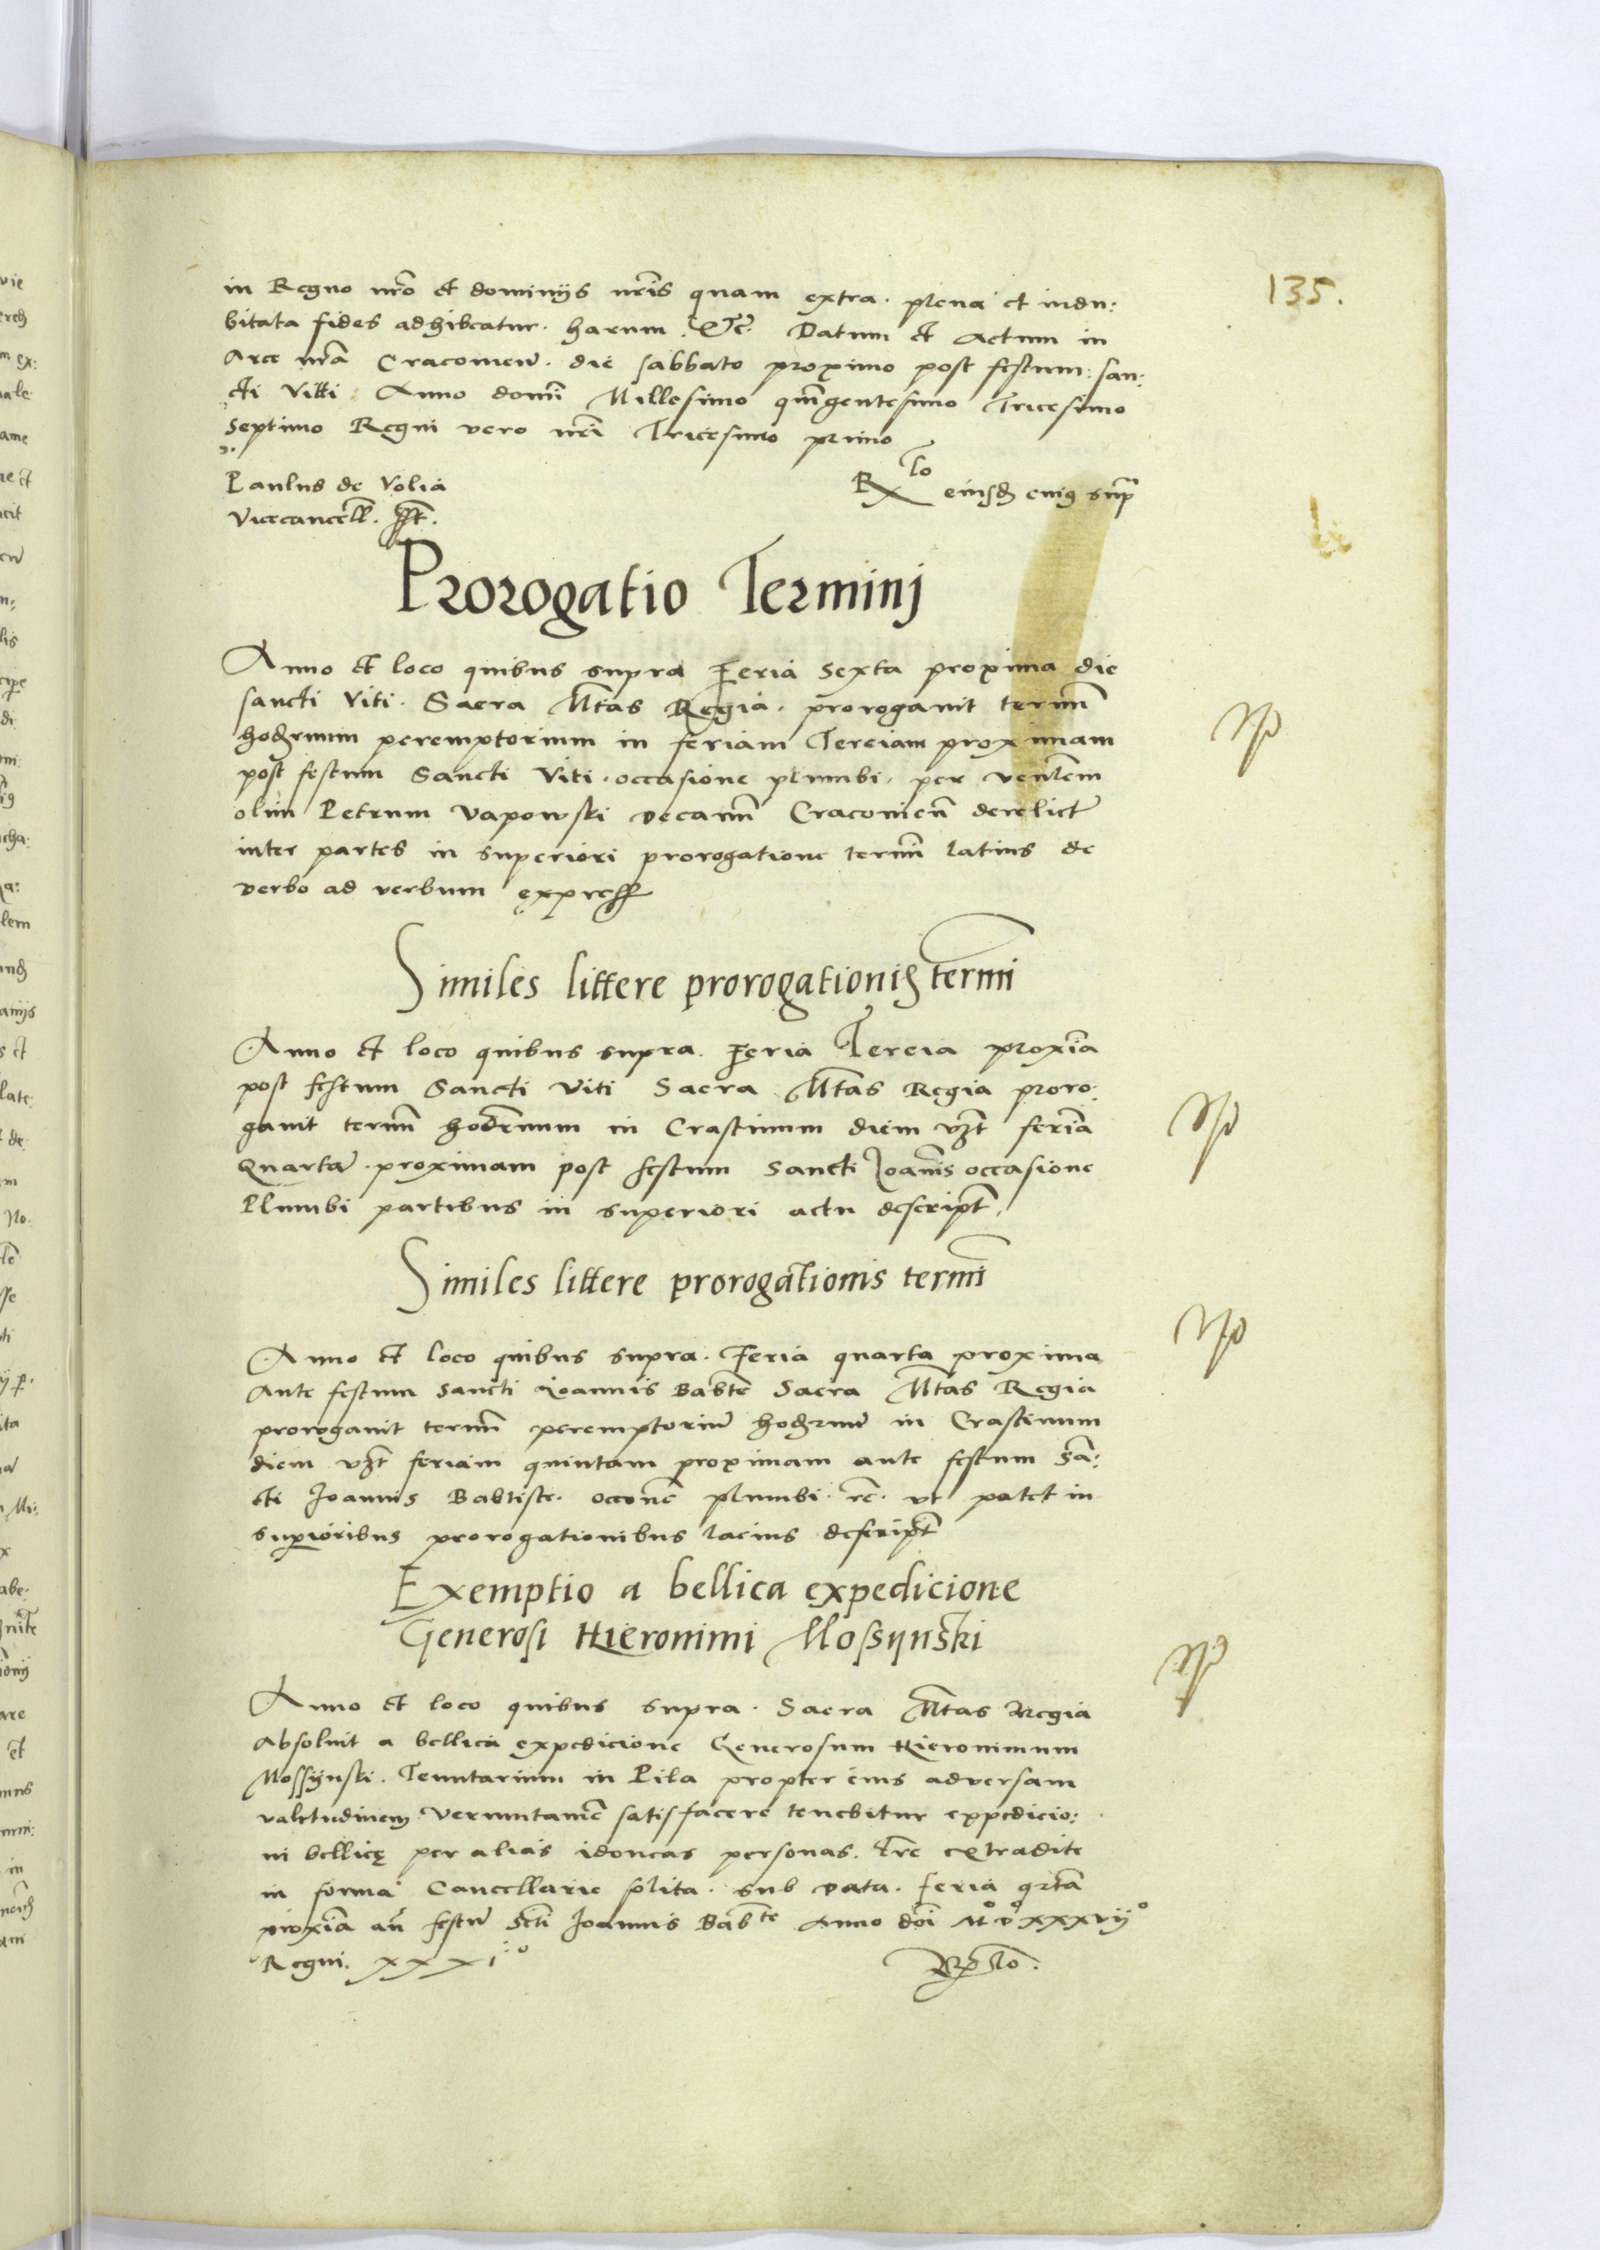 135.
in Regno nrõ et dominijs nris quam extra. plena et indu:
bitata fides adhibeatur. harum. Etc. Datum et Actum in
Arce nrã Cracouien̄. die sabbato proximo post festum: san:
cti Vitti. Anno domĩ Millesimo quĩgentesimo Tricesimo
Septimo Regni vero nrĩ Tricesimo primo
Paulus de Volia
Vicecancell. sst.
Rᵗᵒ eiusd cuiꝯ supᵃ
Prorogatio Terminj
Anno et loco quibus supra Feria Sexta proxima die
sancti Viti. Sacra Mtas Regia. prorogauit termĩ
hodiernum peremptorium in feriam Terciam proximam
post festum Sancti Viti. occasione plumbi. per venlem
olim Petrum Vapowski decanũ Cracouien̄ derelict̃
inter partes in superiori prorogatione termĩ latius de
verbo ad verbum express
Similes littere prorogationis termi
Anno et loco quibus supra. Feria Tercia proxĩa
post festum Sancti Viti Sacra Mtas Regia proro:
gauit termĩ hodrnum in Crastinum diem vzt feriã
Quartã. proximam post festum Sancti Joanis occasione
Plumbi partibus in superiori actu descript̃.
Similes littere prorogationis termĩ
Anno et loco quibus supra. Feria quarta proxima
Ante festum Sancti Joannis Babte Sacra Mtas Regia
prorogauit termĩ peremptoriũ hodrnũ in Crastinum
diem vzt feriam quintam proximam ante festum Sã:
cti Joannis Babtiste. occone plumbi. rc. vt patet in
supioribus prorogationibus lacius descript̃
Exemptio a bellica expedicione
Generosi Hieronimi Mossijnski
Anno et loco quibus supra. Sacra Mtas Regia
Absoluit a bellica expedicione Generosum Hieronimum
Mossijnski. Tenutarium in Pila propter eius aduersam
valetudinem Veruntamẽ satisfacere tenebitur expedicio:
ni bellicę per alias idoneas personas. Lre extradite
in forma Cancellarie solita. sub data. feria qrta
proxĩa añ festũ Scti Joannis Babᵗᵉ Anno doĩ Mᵒ Dᵒ xxxvijᵒ
Regni. xxxiᵒ